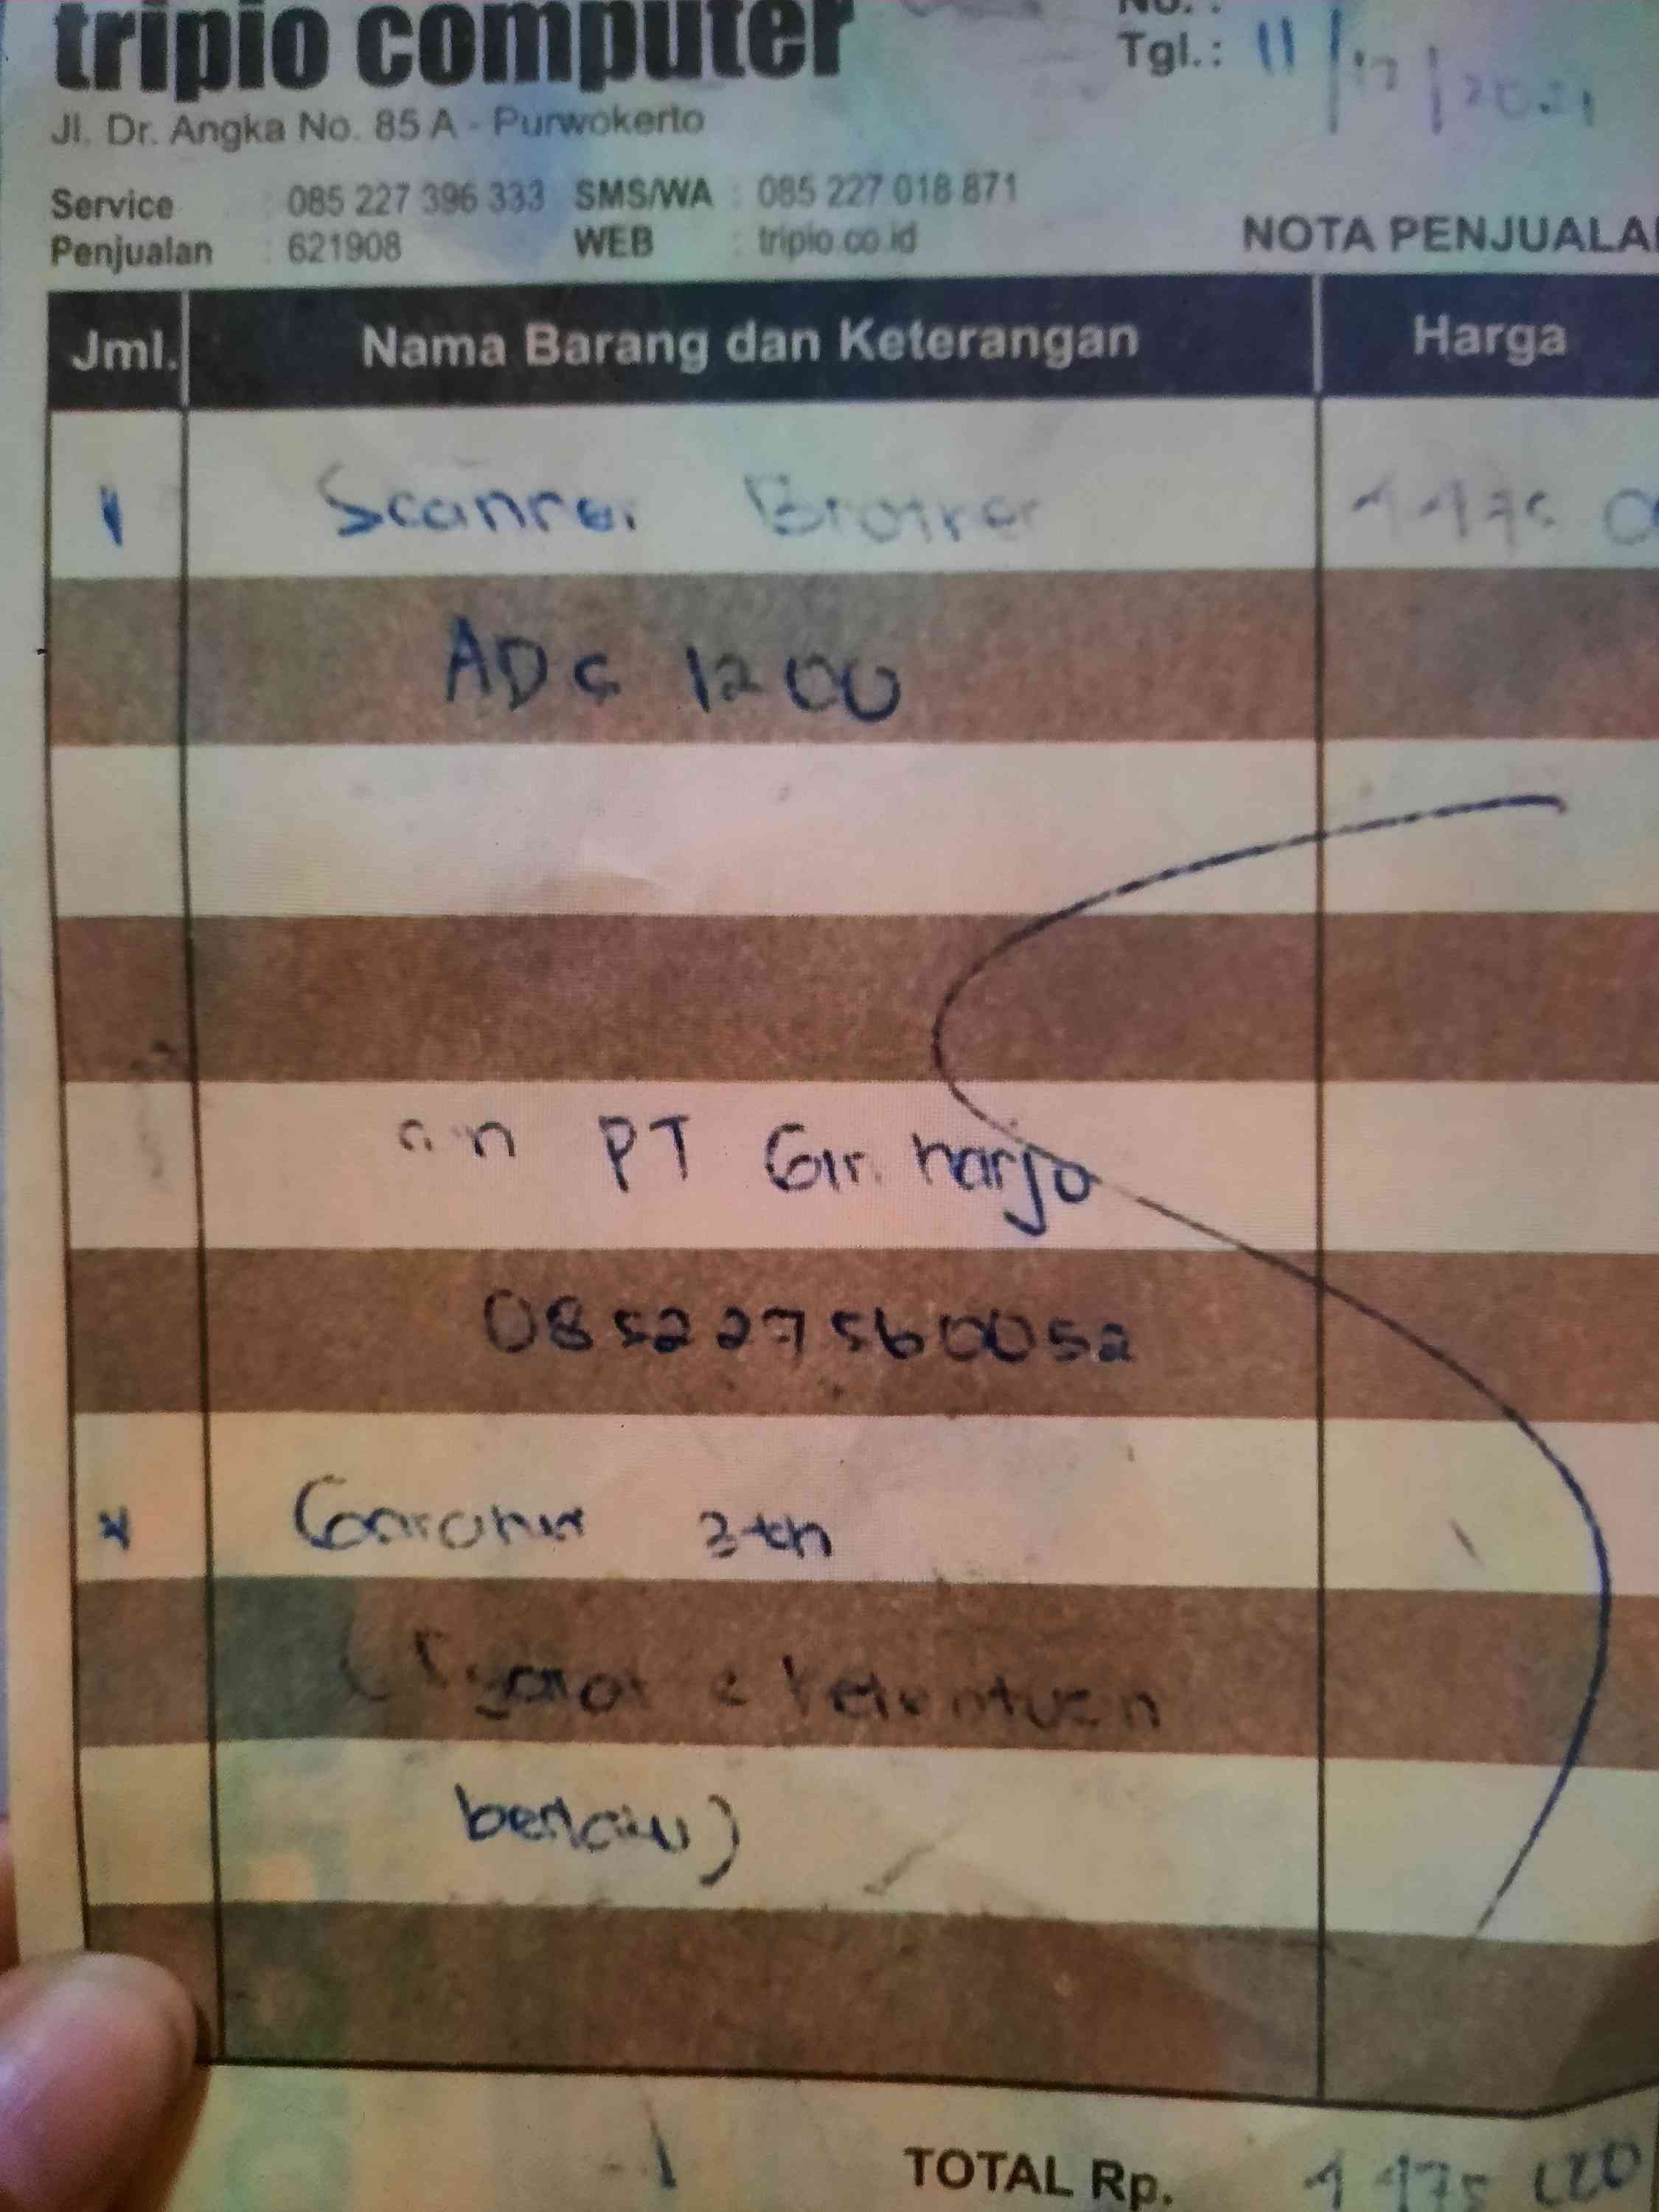 tripio computer
No. :
Tgl. : 11/12/2021
Jl. Dr. Angka No. 85 A - Purwokerto
Service : 085 227 396 333 SMS/WA : 085 227 018 871
Penjualan : 621908 WEB : tripio.co.id
NOTA PENJUALA
Jml. Nama Barang dan Keterangan Harga
1 Scanner Brother
ADS 1200
a.n PT Giri harjo
085227560052
* Garansi 3 th
(Syarat & ketentuan
berlaku)
TOTAL Rp.